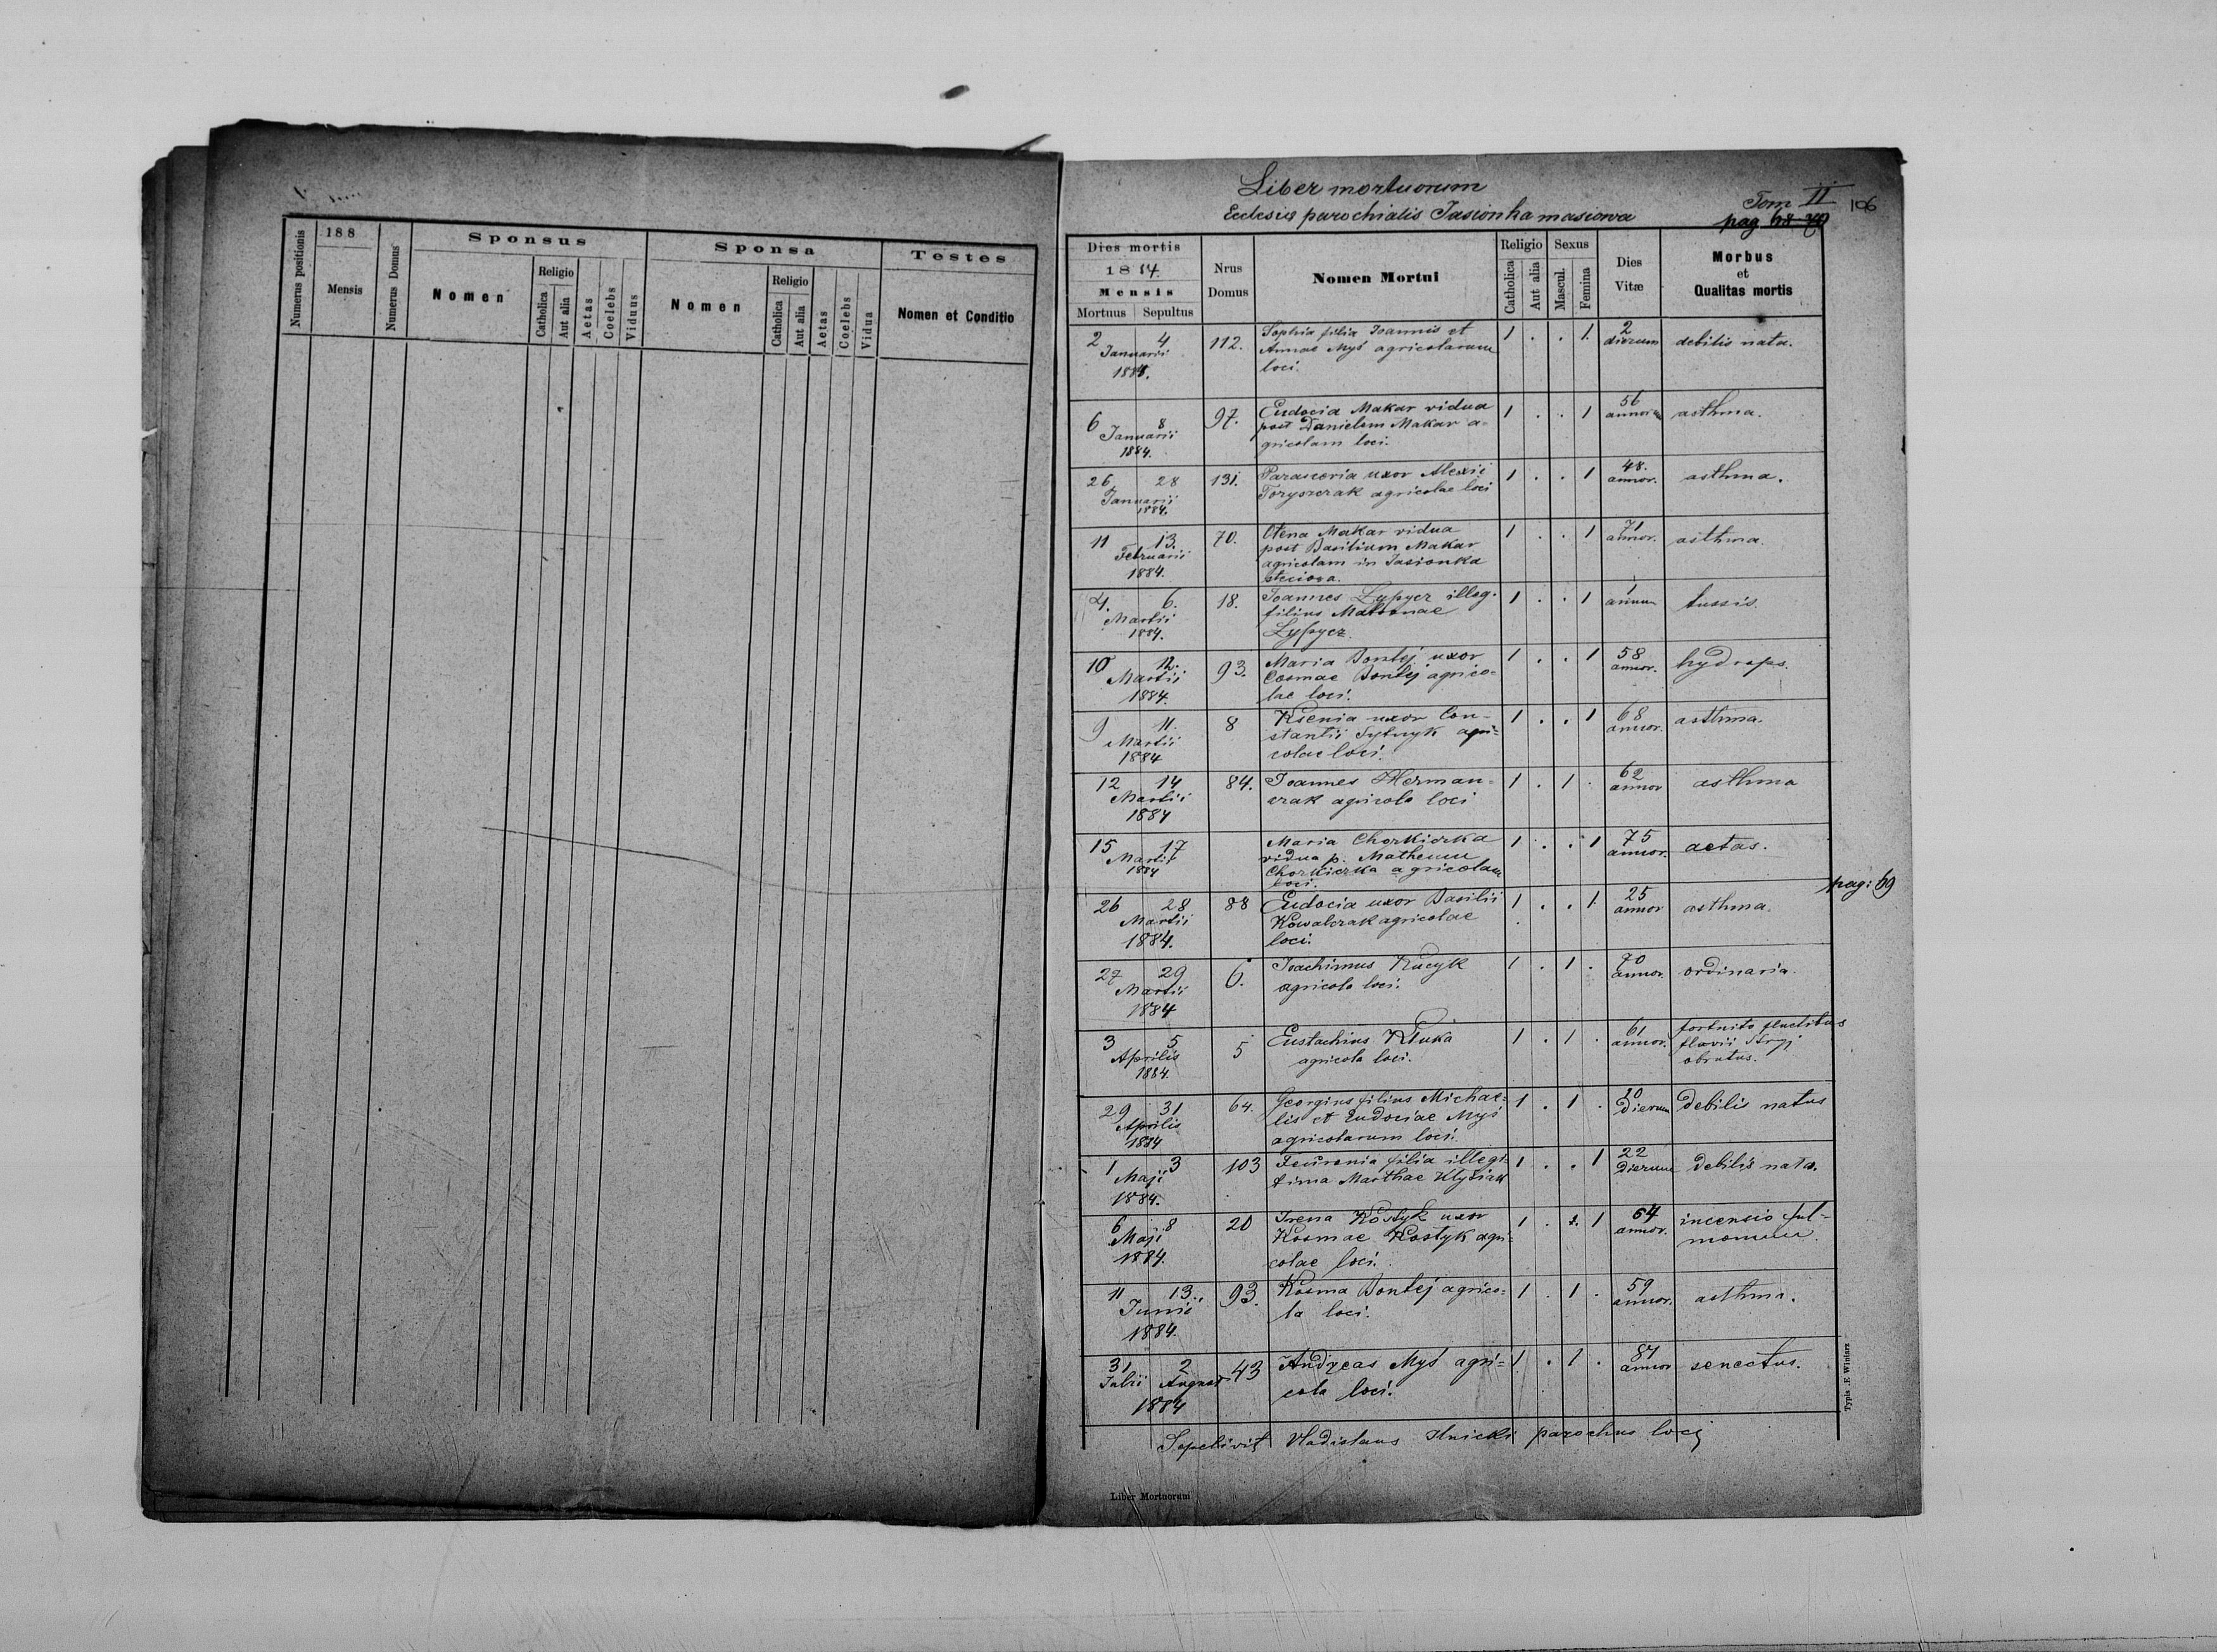 Numerus positionis
188
Mensis
Numerus Domus
Sponsus
Nomen
Religio
Catholica
Aut alia
Aetas
Coelebs
Viduus
Sponsa
Nomen
Religio
Catholica
Aut alia
Aetas
Coelebs
Vidua
Testes
Nomen et Conditio
Liber mortuorum
Ecclesia parochialis Jasionka masiowa
Tom II
pag 68
106
Dies mortis
1884.
Mensis
Mortuus Sepultus
Nrus
Domus
Nomen Mortui
Religio
Catholica
Aut alia
Sexus
Mascul.
Femina
Dies
Vitæ
Morbus
et
Qualitas mortis
2 4 112. Sophia filia Joannis et 1 . . 1. 2
Januarii Annae Myś agricolarum dierum debilis nata.
1884. loci.
6 8 97. Eudocia Makar vidua 1 . . 1 56
Januarii post Danielem Makar a= annorum asthma.
1884. gricolam loci.
26 28 131. Parascevia uxor Alexii 1 . . 1 48.
Januarii Toryszczak agricolae loci annor. asthma.
1884.
11 13. 70. Olena Makar vidua 1 . . 1 71
Februarii post Basilium Makar annor. asthma.
1884. agricolam in Jasionka
steciowa.
4. 6. 18. Joannes Łypycz illeg. 1 . . 1 1
Martii filius annum tussis.
1884. Łypycz.
10 12. 93. Maria Bontej uxor 1 . . 1 58
Martii Cosmae Bontej agrico= annor. hydrops.
1884. lae loci.
9 11. 8 Ksenia uxor Con- 1 . . 1 68
Martii stantii agri= annor. asthma.
1884 colae loci.
12 14 84. Joannes Herman= 1 . 1 . 62
Martii czak agricola loci annor asthma
1884
15 17 Maria Chorkiczka 1 . . 1 75
Martii vidua p. Matheum annor. aetas.
1884 Chorkiczka agricolam
loci.
pag: 69
26 28 88 Eudocia uxor Basilii 1 . . 1. 25
Martii Kowalczak agricolae annor asthma.
1884. loci.
27 29 6. Joachimus Kucyk 1 . 1 . 70
Martii agricola loci. annor. ordinaria.
1884
3 5 5 Eustachius Kluka 1 . 1 . 61 fortuito fluctibus
Aprilis agricola loci. annor. flavii Stryj
1884. obrutus.
29 31 64. Georgius filius Michae= 1 . 1 . 10
Aprilis lis et Eudociae Myś Dierum debilis natus
1884 agricolarum loci.
1 3 103 filia illegi= 1 . . 1 22
Maji tima Marthae Dierum debilis nata.
1884.
6 8 20 Irena Kostyk uxor 1 . 1 64 incensio pul-
Maji Kosmae Kostyk agri= annor. monum.
1884. colae loci.
11 13. 93. Kosma Bontej agrico= 1 . 1 . 59
Junii la loci. annor. asthma.
1884.
31 2 43 Andreas Myś agri= 1 . 1 . 87
Julii August cola loci. annor senectus.
1884
Sepelivit Vladislaus Ilnicki parochus loci
Liber Mortuorum
Typis .E Winiarz